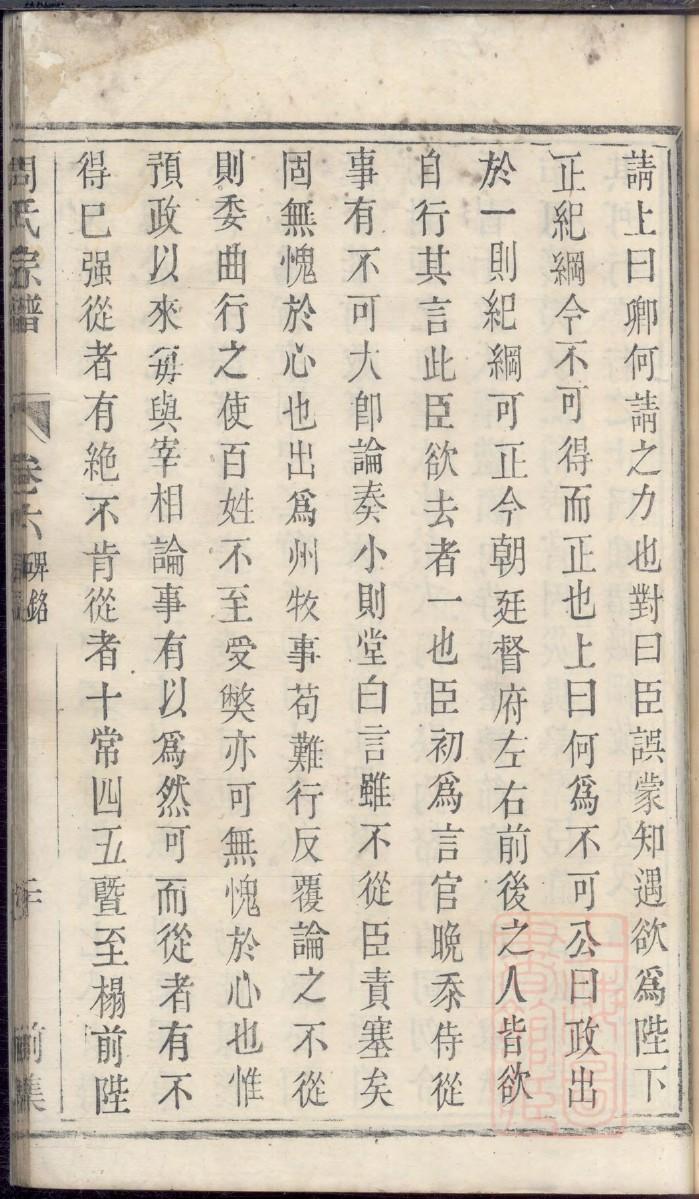 請上曰卿何請之力也對曰臣誤蒙知遇欲爲陛下
正紀綱今不可得而正也上曰何爲不可公曰政出
於一則紀綱可正今朝廷督府左右前後之人皆欲
自行其言此臣欲去者一也臣初爲言官晚忝侍從
事有不可大卽論奏小則堂白言雖不從臣責塞矣
固無愧於心也出爲州牧事苟難行反覆論之不從
則委曲行之使百姓不至受獘亦可無愧於心也惟
預政以來每與宰相論事有以爲然可而從者有不
得已强從者有絶不肯從者十常四五暨至榻前陛
周氏宗譜
卷六
碑銘
前集